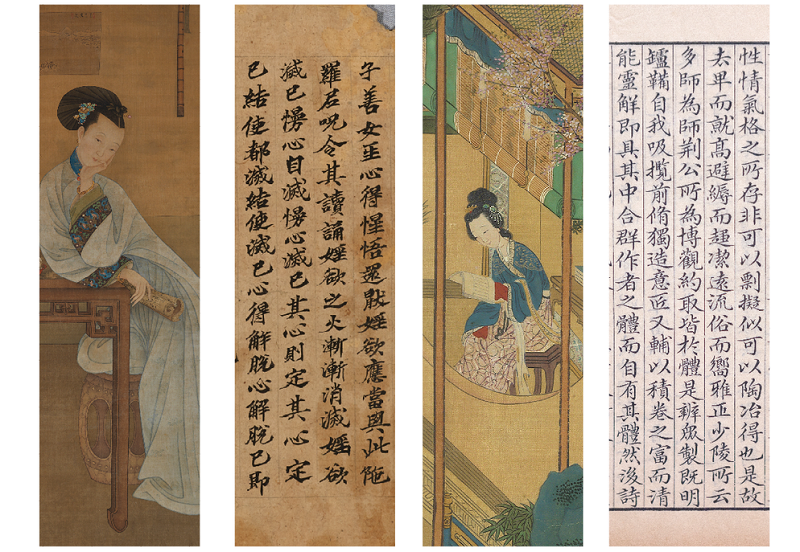 子善女至心得惺悟還厭婬欲應當與此陁
羅尼呪令其讀誦婬欲之火漸漸消滅婬欲
滅已慢心自滅慢心滅已其心則定其心定
已結使都滅結使滅已心得解脫心解脫已即
性情氣格之所存非可以剽擬似可以陶冶得也是故
去卑而就高避縟而趨潔遠流俗而嚮雅正少陵所云
多師為師荆公所為博觀約取皆於體是辨眾製既明
鑪鞴自我吸攬前脩獨造意匠又輔以積卷之富而清
能靈解即具其中合群作者之體而自有其體然後詩